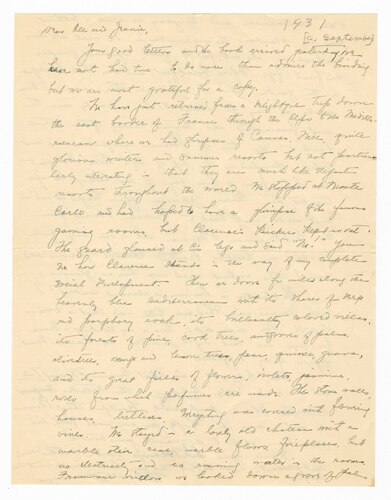 1931
[c. September]
Dear Dee and Frannie,
Your good letters and the book arrived yesterday. We
have not had time to do more than admire the binding
but we are most grateful for a copy.
We have just returned from a trip down
the east border of France through the Alps to the Mediter-
ranean where we had glimpses of Cannes, Nice, quite
glorious winter and summer resorts but not particu-
larly interesting in that they are much like elegant
resorts throughout the world. We stopped at Monte
Carlo and had hoped to have a glimpse of the famous
gaming rooms, but Clarence's knickers kept us out.
The guard glanced at C's legs and said "No." You
see how Clarence stands in the way of my complete
social development. Then we drove for miles along the
heavenly blue Mediterranean with its shores of red
and porphory rock, its brilliantly colored villas,
its forests of pine, cork trees, and groves of palms,
olive trees, orange and lemon trees, pear, quince, guava,
and its great fields of flowers, violets, jasmine,
roses from which perfumes are made. The stone walls,
houses, hillsides. Everything was covered with flowering
vines. We stayed in a lovely old chateau with a
marble stair case, marble floors, fireplaces, but
no electricity and no running water in the rooms.
From our windows we looked down a grove of